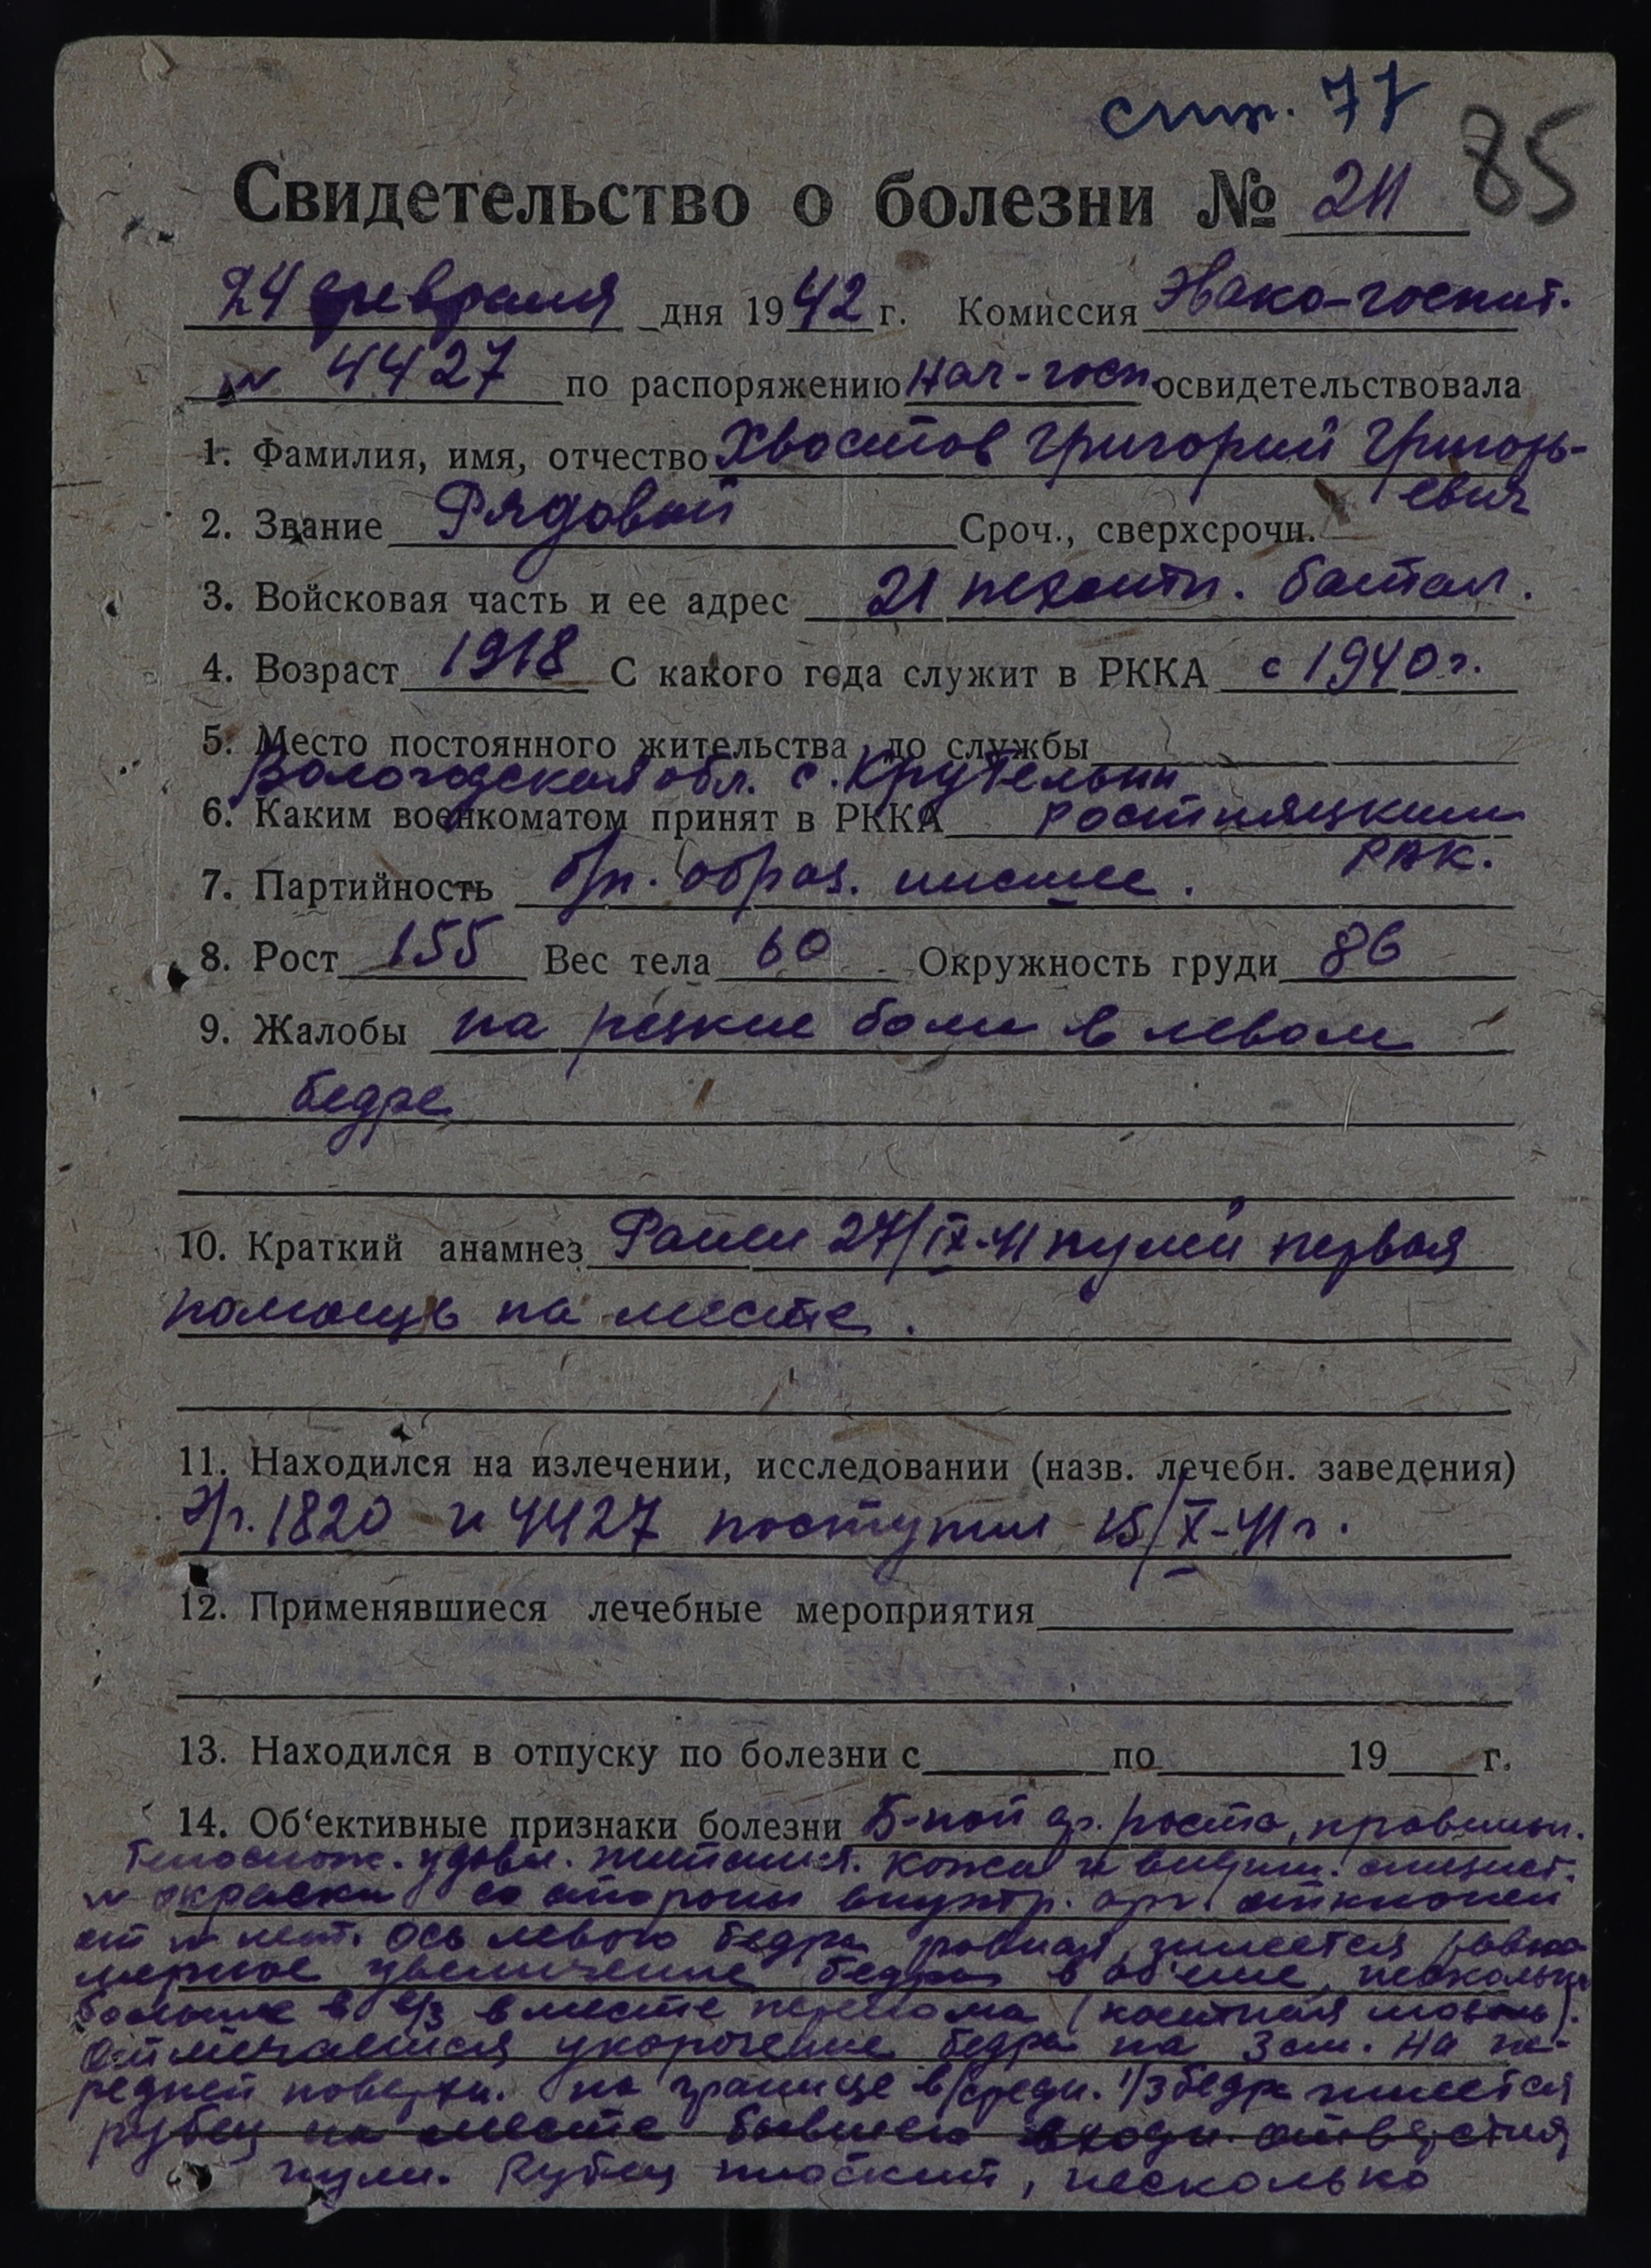 стр. 77
85
Свидетельство о болезни № 211
24 февраля дня 1942 г. Комиссия Эвако-госпит.
№ 4427 по распоряжению нач-госп. освидетельствовала
1. Фамилия, имя, отчество Хвостов Григорий Григорь-
евич
2. Звание Рядовой Сроч., сверхсрочн.
3. Войсковая часть и ее адрес 21 пехотн. батал.
4. Возраст 1918 С какого года служит в РККА с 1940 г.
5. Место постоянного жительства до службы
Вологодская обл. с.
6. Каким военкоматом принят в РККА
РВК.
7. Партийность б/п. образ. низшее.
8. Рост 155 Вес тела 60 Окружность груди 86
9. Жалобы на резкие боли в левом
бедре
10. Краткий анамнез Ранен 27/IX-41 пулей первая
помощь на месте.
11. Находился на излечении, исследовании (назв. лечебн. заведения)
Э/г. 1820 и 4427 поступил 15/X-41 г.
12. Применявшиеся лечебные мероприятия
13. Находился в отпуску по болезни с по 19 г.
14. Об‘ективные признаки болезни Б-ной ср. роста, правильн.
телослож. удовл. питания. Кожа и видим. слизист.
н окраски со стороны внутр. орг. отклонен
от н нет. Ось левого бедра ровная, имеется равно-
мерное увеличение бедра в об'еме, несколько
больше в в/3 в месте перелома (костная мозоль).
Отмечается укорочение бедра на 3 см. На пе-
редней поверхн. на границе в/средн. 1/3 бедра имеется
рубец на месте бывшего входн. отверстия
пули. Рубец плоский, несколько